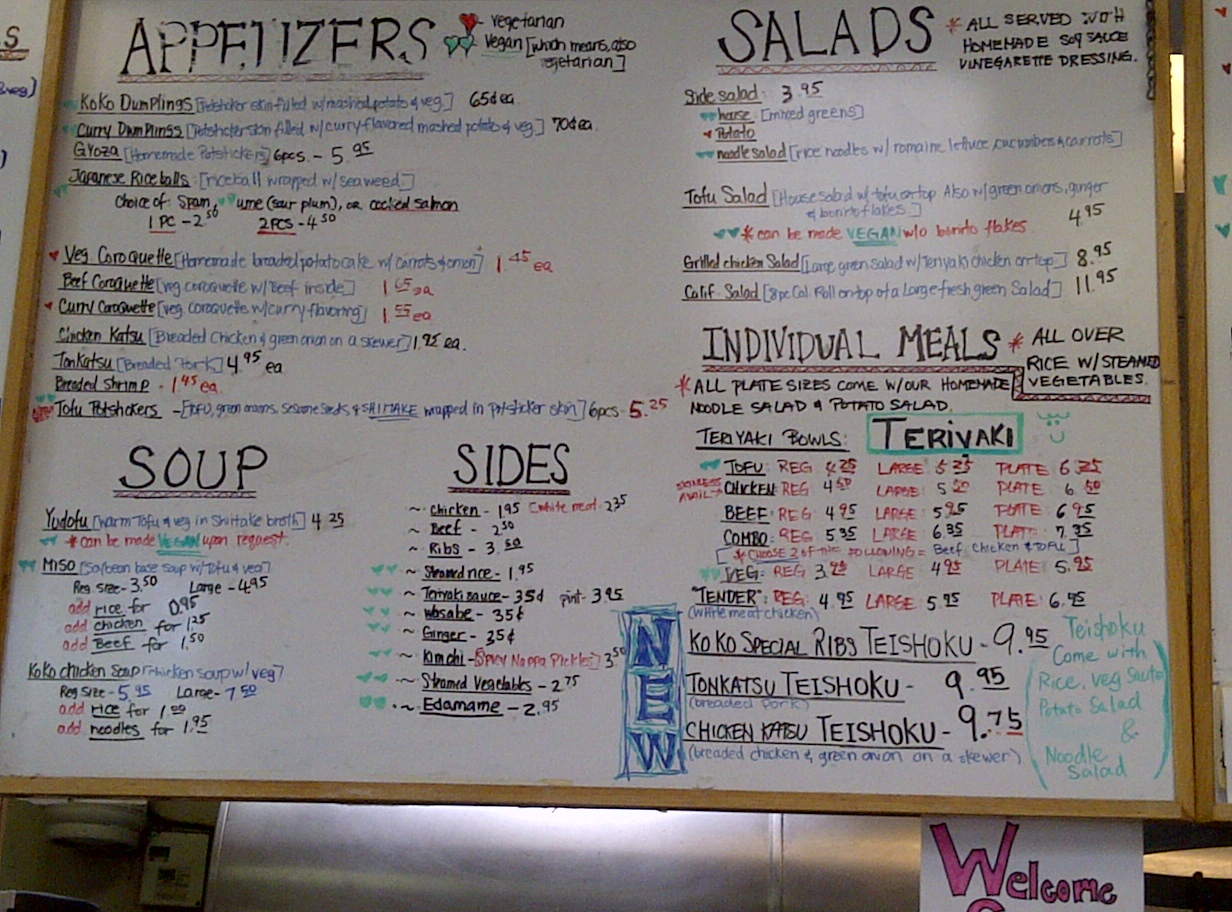 APPETIZERS
vegetarian
Vegan [which means, also vegetarian]
Koko Dumplings [Potsticker skin filled w/mashed potato & veg.] 65¢ ea.
Curry Dumplings [Potsticker skin filled w/curry flavored mashed potato & veg] 70¢ ea.
Gyoza [Homemade Potstickers] 6pcs. - 5.95
Japanese Riceballs: [riceball wrapped w/seaweed]
Choice of: Spam, ume (sour plum), or cooked salmon
1 PC - 2.50 2PCS - 4.50
Veg. Coroquette [Homemade breaded potato cake w/ carrots & onion] 1.45 ea
Beef Coroquette [veg. coroquette w/Beef inside] 1.65 ea
Curry Coroquette [veg. coroquette w/curry flavoring] 1.55 ea
Chicken Katsu [Breaded Chicken & green onion on a skewer] 1.95 ea.
Tonkatsu [Breaded Pork] 4.95 ea
Breaded Shrimp - 1.45 ea.
Tofu Potstickers - [TOFU, green onions, sesame seeds, & SHITAKE wrapped in potsticker skin] 6pcs - 5.25
SOUP
Yudofu [warm Tofu & veg in Shiitake broth] 4.25
* can be made VEGAN upon request.
Miso [Soybean base soup w/Tofu & veg]
Reg. size - 3.50 Large - 4.95
add rice for 0.95
add chicken for 1.25
add Beef for 1.50
Koko chicken Soup [chicken soup w/ veg]
Reg Size - 5.95 Large - 7.50
add rice for 1.00
add noodles for 1.95
SIDES
~ chicken - 1.95 (white meat - 2.35
~ Beef - 2.50
~ Ribs - 3.50
~ Steamed rice - 1.95
~ Teriyaki sauce - 35¢ pint - 3.95
~ Wasabe - 35¢
~ Ginger - 35¢
~ Kimchi - [Spicy Nappa Pickles] 3.50
~ Steamed Vegetables - 2.75
~ Edamame - 2.95
SALADS
* ALL SERVED WITH HOMEMADE SOY SAUCE VINEGARETTE DRESSING.
Side salad: 3.95
house [mixed greens]
Potato
noodle salad [rice noodles w/ romaine lettuce, cucumbers & carrots]
Tofu Salad [House salad w/ tofu on top Also w/ green onions, ginger
& bonito flakes.] 4.95
* can be made VEGAN w/o bonito flakes
Grilled chicken Salad [Large green Salad w/Teriyaki chicken on top] 8.95
Calif. Salad [8pc Cal. Roll on top of a Large fresh green Salad] 11.95
INDIVIDUAL MEALS
* ALL OVER RICE W/STEAMED VEGETABLES.
* ALL PLATE SIZES COME W/OUR HOMEMADE
NOODLE SALAD & POTATO SALAD.
TERIYAKI BOWLS: TERIYAKI
TOFU: REG 4.25 LARGE: 5.25 PLATE 6.25
CHICKEN: REG 4.50 LARGE: 5.50 PLATE: 6.50
BEEF: REG 4.95 LARGE: 5.95 PLATE 6.95
COMBO: REG 5.35 LARGE: 6.35 PLATE: 7.35
[* CHOOSE 2 OF THE FOLLOWING = Beef, Chicken & TOFU]
VEG: REG 3.95 LARGE 4.95 PLATE: 5.95
"TENDER": REG: 4.95 LARGE: 5.95 PLATE: 6.95
(White meat chicken)
NEW
KOKO SPECIAL RIBS TEISHOKU - 9.95
TONKATSU TEISHOKU - 9.95
(breaded pork)
CHICKEN KATSU TEISHOKU - 9.75
(breaded chicken & green onion on a skewer)
Teishoku
Come with
Rice, veg Saute
Potato Salad
&
Noodle
Salad
Welcome